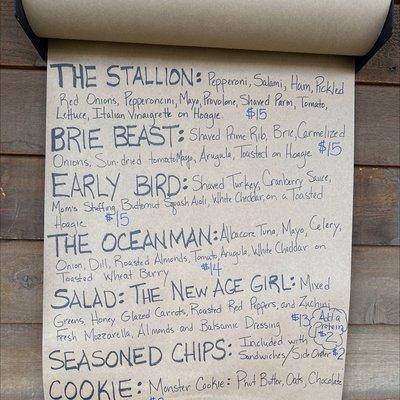 THE STALLION: Pepperoni, Salami, Ham, Pickled
Red Onions, Pepperoncini, Mayo, Provolone, Shaved Parm, Tomato,
Lettuce, Italian Vinaigrette on Hoagie. $15
BRIE BEAST: Shaved Prime Rib, Brie, Carmelized
Onions, Sun-dried tomato Mayo, Arugula, Toasted on Hoagie $15
EARLY BIRD: Shaved Turkey, Cranberry Sauce,
Mom's Stuffing, Butternut Squash Aioli, White Cheddar, on a Toasted
Hoagie $15
THE OCEANMAN: Albacore Tuna, Mayo, Celery,
Onion, Dill, Roasted Almonds, Tomato, Arugula, White Cheddar on
Toasted Wheat Berry $14
SALAD: THE NEW AGE GIRL: Mixed
Greens, Honey Glazed Carrots, Roasted Red Peppers, and Zuchini
Fresh Mozzarella, Almonds and Balsamic Dressing $13
Add a
Protein
SEASONED CHIPS: Included with
Sandwiches/Side Order $2
COOKIE: Monster Cookie: Pnut Butter, Oats, Chocolate